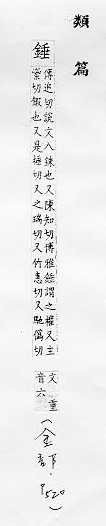 類篇
錘
傳追切說文八銖也又陳知切博雅錘謂之權又主
橤切鍛也又是捶切又之瑞切又竹恚切又馳偽切
文一重
音六
(金部.P.520